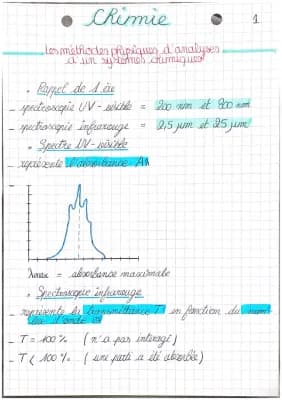 Chimie
1
Les méthodes physiques d'analyses
d'un systèmes chimiques
• Rappel de 1 ère
- spectroscopie UV-visible = 200 nm et 800 nm
- spectroscopie infrarouge = 2,5 µm et 25 µm
• Spectre UV-visible
- représente l'absorbance A
λmax = absorbance maximale
• Spectroscopie infrarouge
- représente la transmittance T en fonction du nom
bre d'onde
- T = 100 % (n'a pas interagi)
- T < 100 % (une partie a été absorbée)